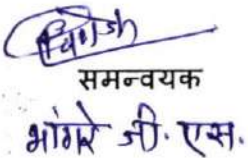 समन्वयक
भांगरे जी. एस.